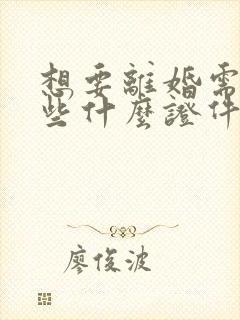 想要離婚需
些什麼證件
廖俊波